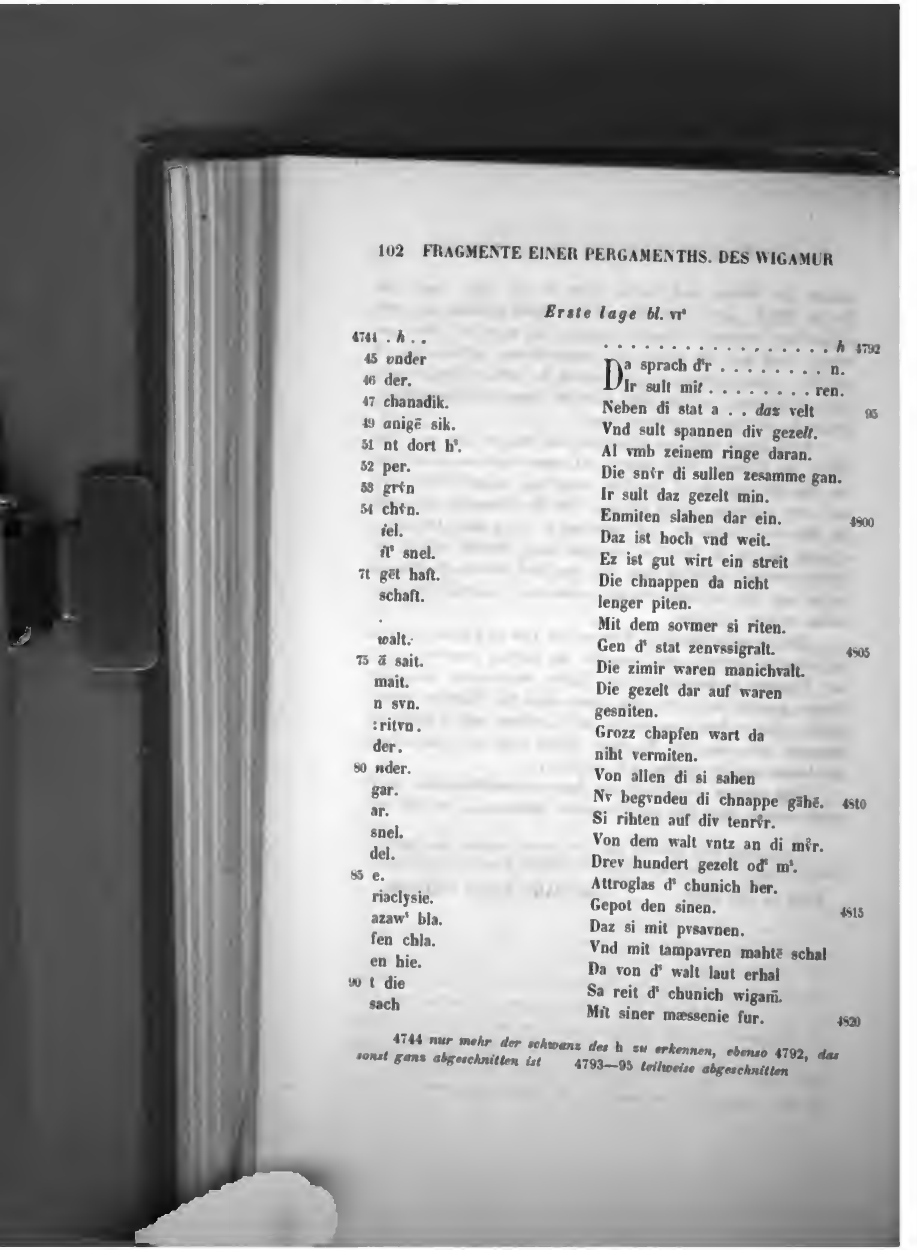 102 FRAGMENTE EINER PERGAMENTHS. DES WIGAMUR
Erste lage bl. VIᵃ
4744 . h . .
45 vnder
46 der.
47 chanadik.
49 anigē sik.
51 nt dort hˢ.
52 per.
53 grîn
54 chîn.
iel.
snel.
71 gēt haft.
schaft.
.
walt.
75 ā sait.
mait.
n svn.
:ritvn.
der.
80 nder.
gar.
ar.
snel.
del.
85 e.
riaclysie.
azawˢ bla.
fen chla.
en hie.
90 t die
sach
. . . . . . . . . . . . . . . . . h 4792
Da sprach dˢr . . . . . . . . n.
DIr sult mit . . . . . . . . ren.
Neben di stat a . . daz velt 95
Vnd sult spannen div gezelt.
Al vmb zeinem ringe daran.
Die snvͤr di sullen zesamme gan.
Ir sult daz gezelt min.
Enmiten slahen dar ein. 4800
Daz ist hoch vnd weit.
Ez ist gut wirt ein streit
Die chnappen da nicht
lenger piten.
Mit dem sovmer si riten.
Gen dˢ stat zenvssigralt. 4805
Die zimir waren manichvalt.
Die gezelt dar auf waren
gesniten.
Grozz chapfen wart da
niht vermiten.
Von allen di si sahen
Nv begvndeu di chnappe gāhē. 4810
Si rihten auf div tenrvͤr.
Von dem walt vntz an di mvͤr.
Drev hundert gezelt odˢ mˢ.
Attroglas dˢ chunich her.
Gepot den sinen. 4815
Daz si mit pvsavnen.
Vnd mit tampavren mahtē schal
Da von dˢ walt laut erhal
Sa reit dˢ chunich wigam̄.
Mit siner mæssenie fur. 4820
4744 nur mehr der schwanz des h zu erkennen, ebenso 4792, das
sonst ganz abgeschnitten ist 4793—95 teilweise abgeschnitten